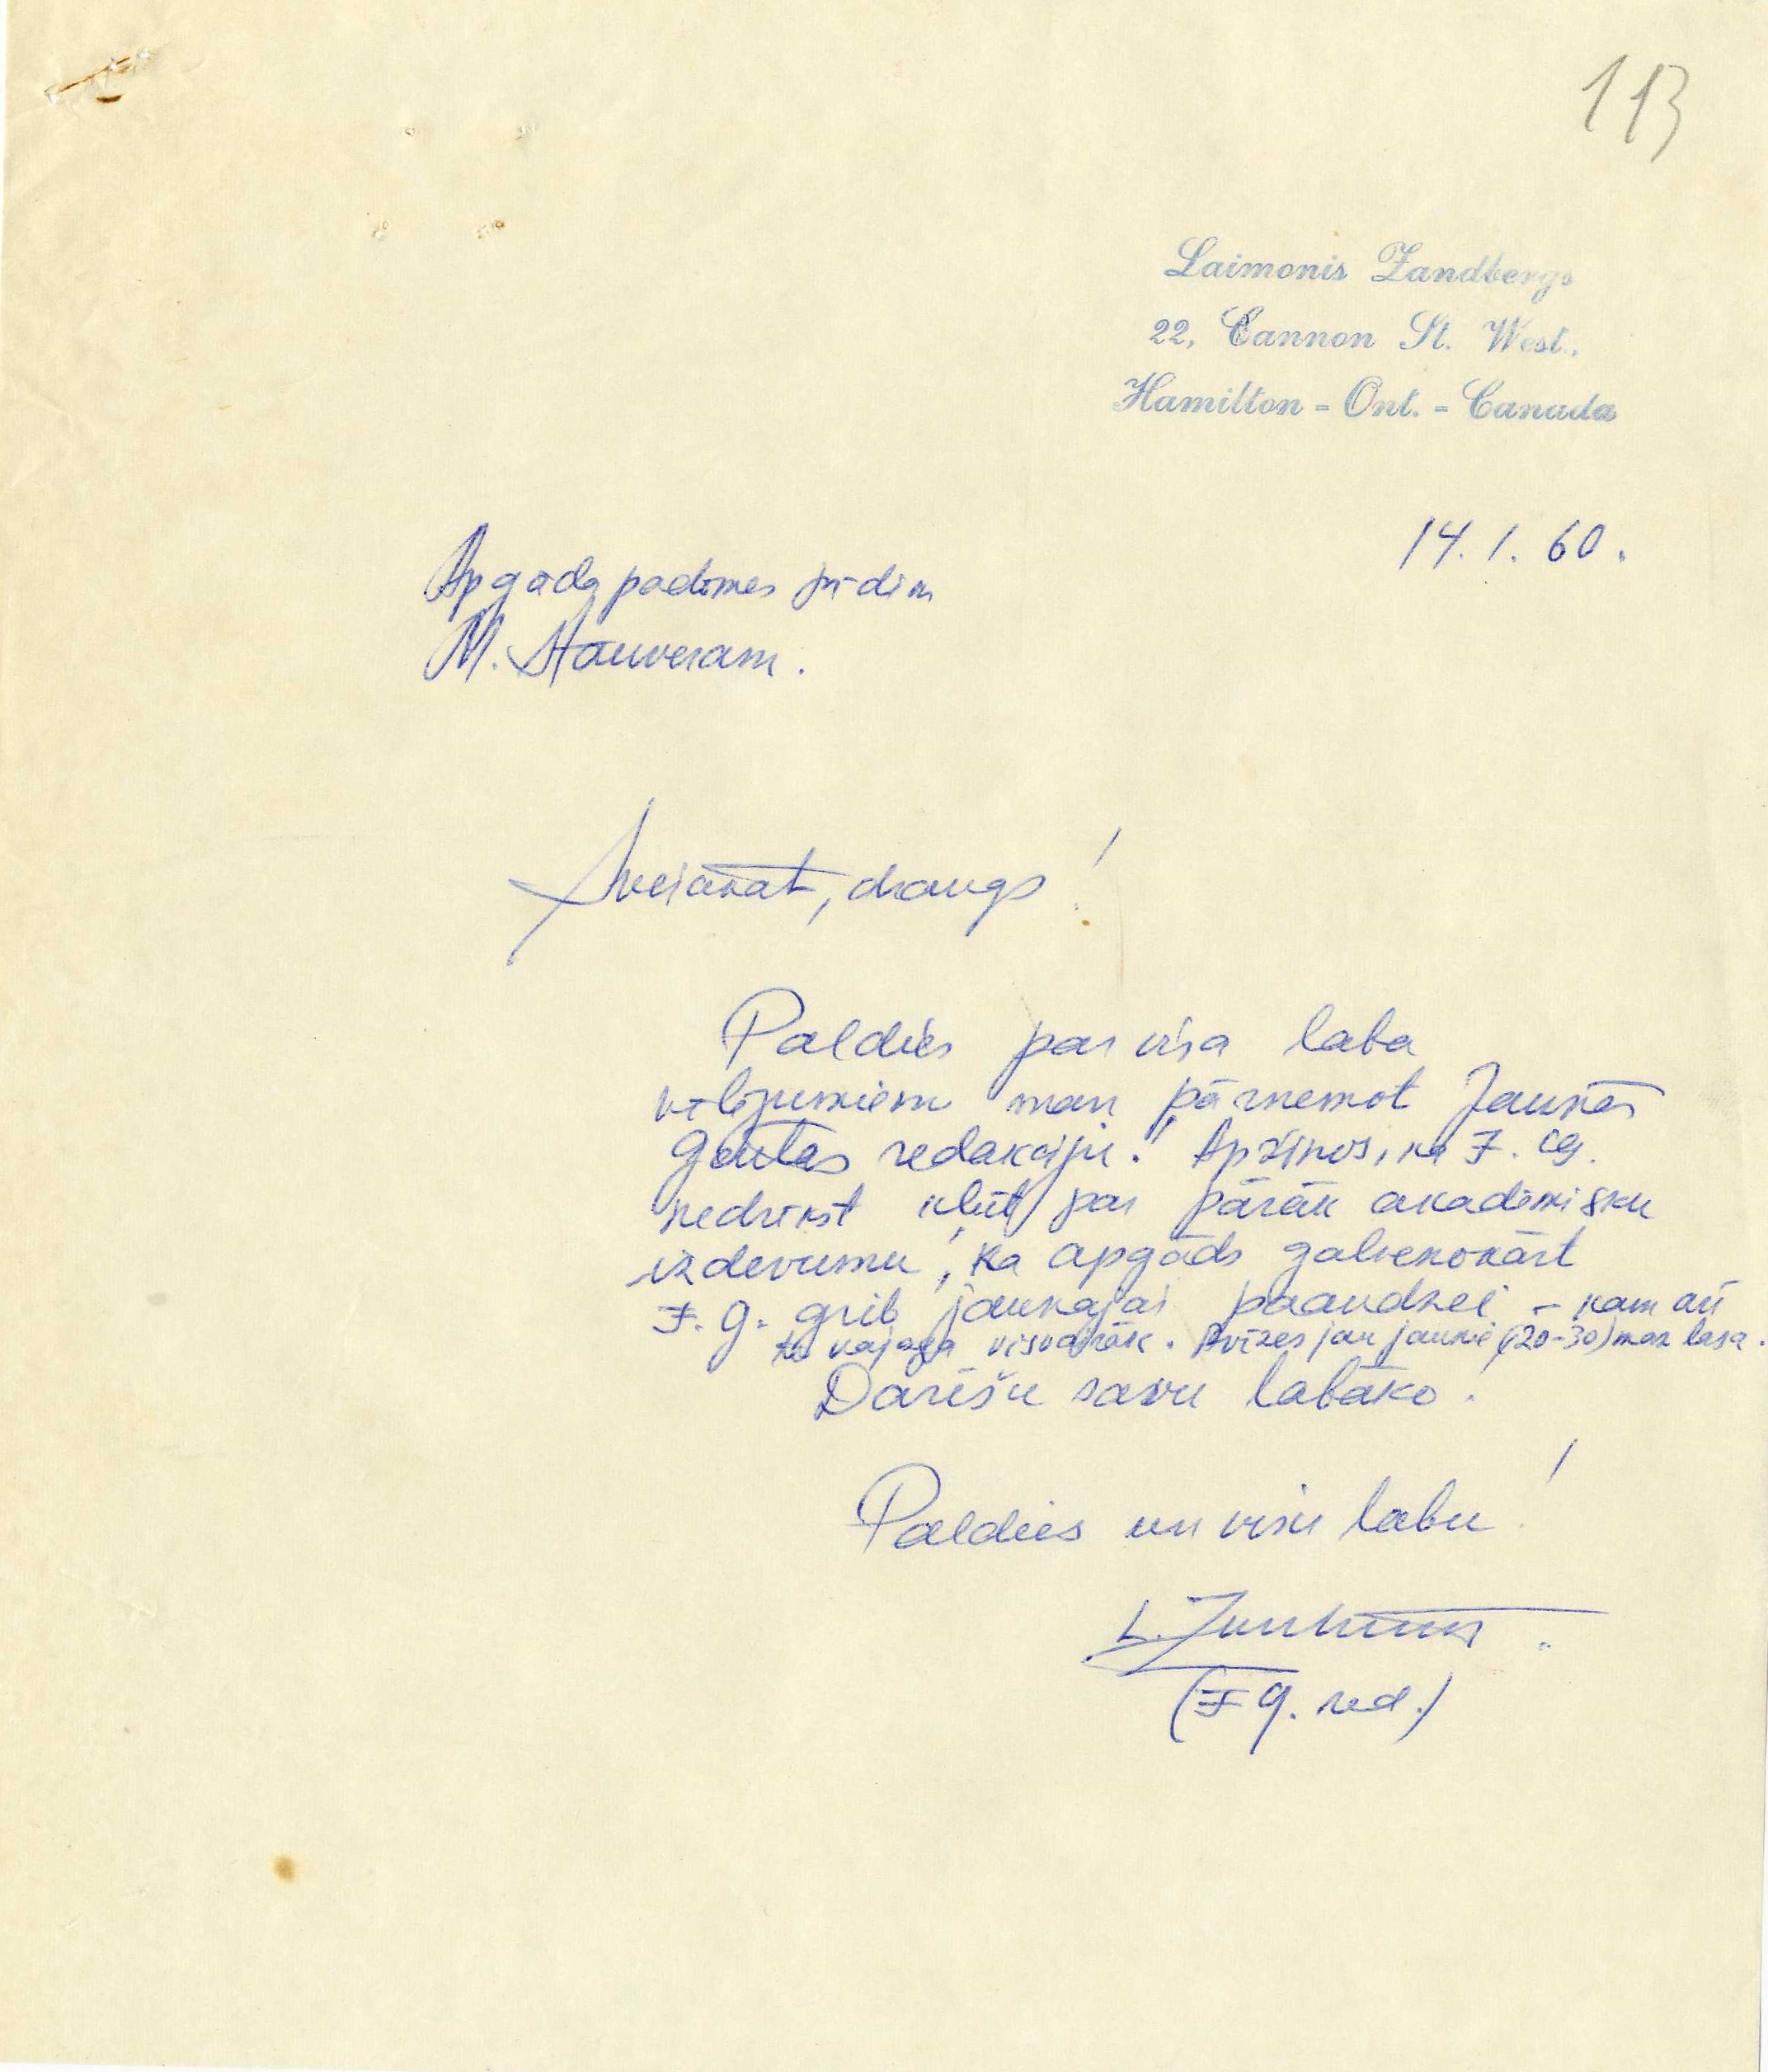 113
Laimonis Zandbergs
22, Cannon St. West.,
Hamilton - Ont. - Canada
14. 1. 60.
Apgāda padomes
M. Stauveram.
Sveicināt, draugs!
Paldies par visa laba
vēlējumiem man pārņemot Jaunās
Gaitas redakciju. Apzinos, ka J. G.
nedrīkst kļūt par pārāk akadēmisku
izdevumu, ka apgāds galvenokārt
J. G. grib jaunajai paaudzei – kam arī
to vajaga visvairāk. Avīzes jau jaunie (20-30) maz lasa.
Darīšu savu labāko.
Paldies un visu labu!
L.
(J G. red.)